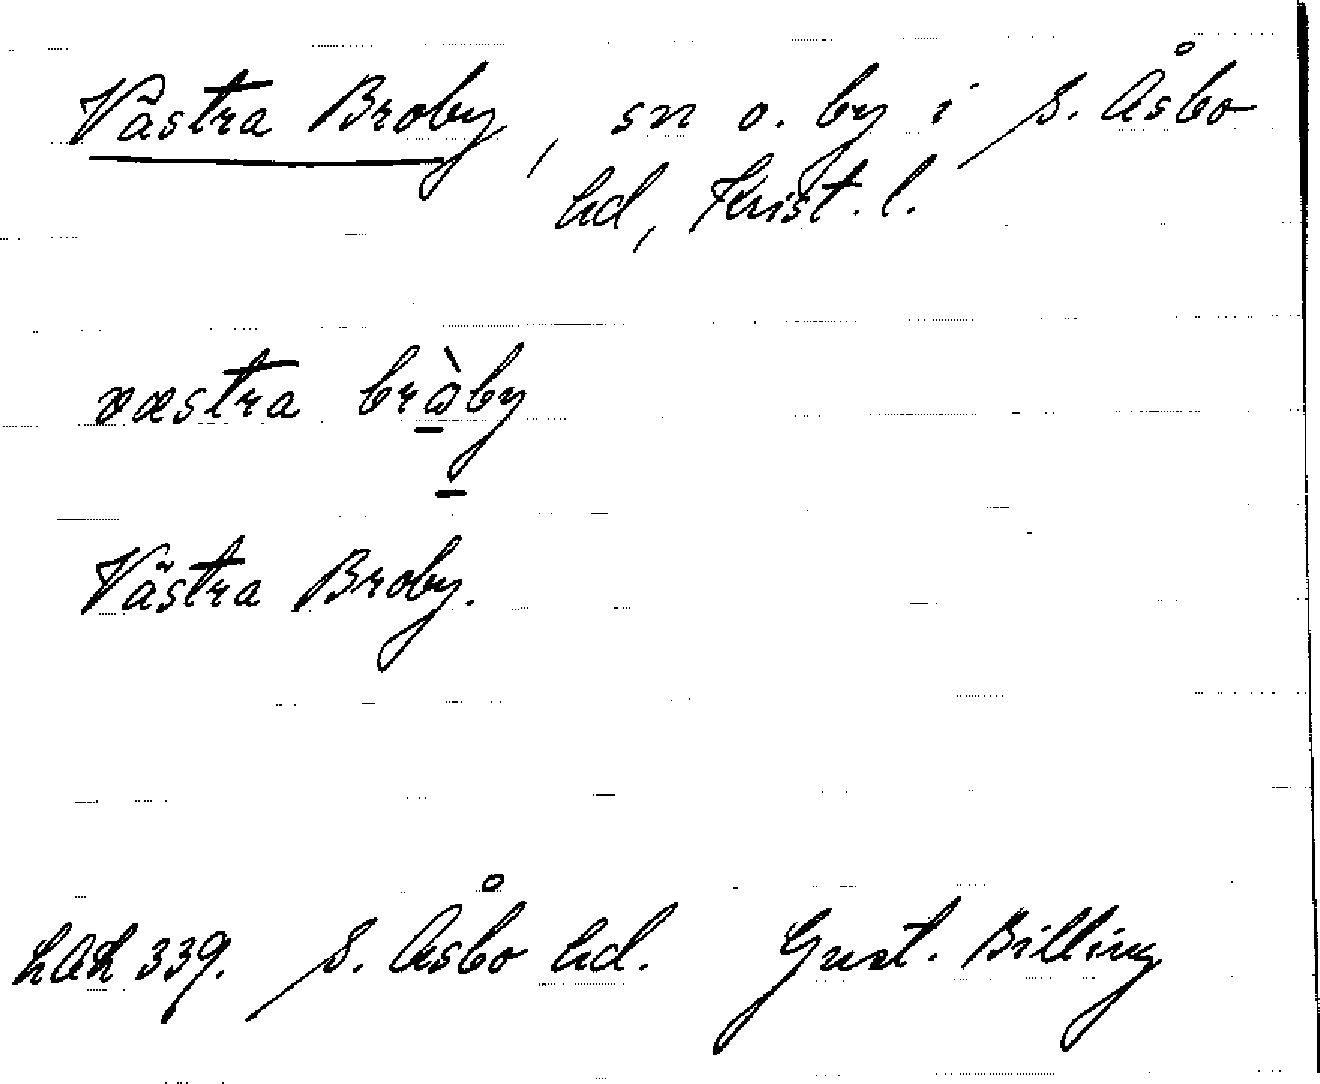 Västra Broby, sn o. by i S. Åsbo
hd, Krist. l.
væstra bròby
Västra Broby.
LAL 339. S. Åsbo hd. Gust. Billing